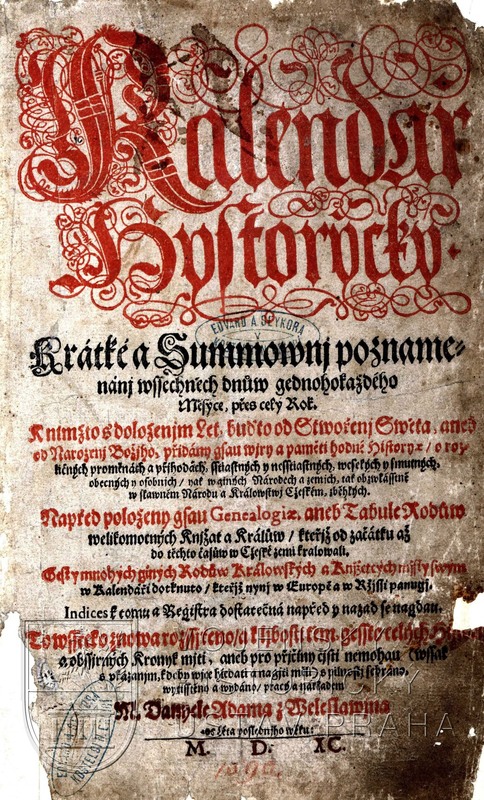 Kalendar
Hystorycký.
Krátké a Summownj pozname-
nánj wssechněch dnůw gednohokaždého
Měsýce, přes celý Rok.
K nimžto s doloženjm Let, buďto od Stwořenj Swěta, aneb
od Narozenj Božjho, přidány gsau wjry a paměti hodné Historyæ / o roz-
ličných proměnách a přjhodách, sstiastných y nesstiastných, weselých y smutných,
obecných y osobnjch / yak w giných Národech a zemjch, tak obzwlásstně
w slawném Národu a Králowstwj Cžeském, zběhlých.
Napřed položeny gsau Genealogiæ, aneb Tabule Rodůw
welikomocných Knjžat a Králůw / kteřjž od začátku až
do těchto časůw w Cžeské zemi kralowali,
Gesty mnohých giných Rodůw Králowských a Knjžetcých mjsty swými
w Kalendáři dotknuto / kteřjž nynj w Europě a w Ržjssi panugj.
Indices k tomu a Registra dostatečná napřed y nazad se nagdau.
To wssecko znowa rozssjřeno / a k ljbosti těm gessto celých
a obssjrných Kronyk mjti, aneb pro přjčiny čjsti nemohau (wssak
s vkázanjm, kdeby wjce hledati a nagjti měli) s pilnostj sebráno,
wytisstěno a wydáno / pracý a nákladem
M. Danyele Adama z Weleslawjna
Léta poslednjho wěku:
M. D. IC.
EDVARD A. SÝKORA
ÚSTAV PRAHA